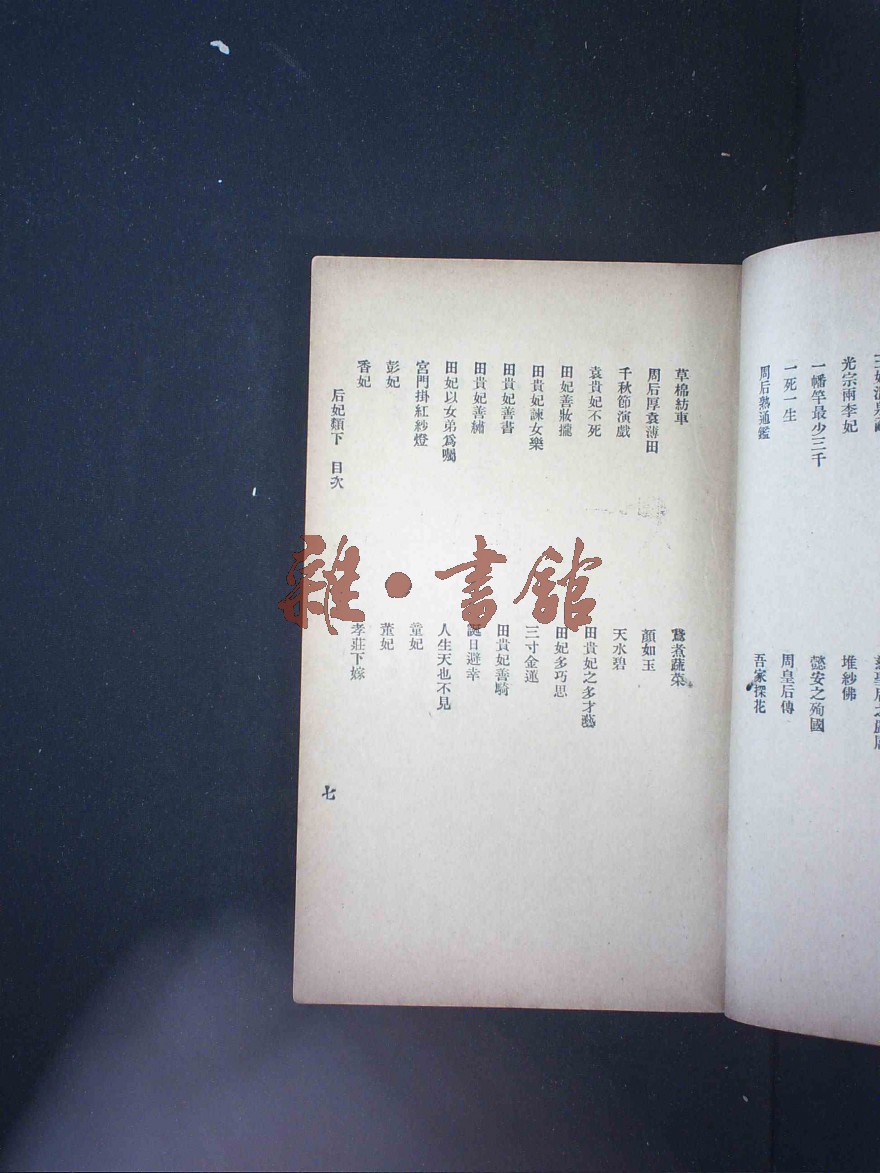 光宗兩李妃
一幡竿最少三千
一死一生
周后熟通鑑
堆紗佛
懿安之殉國
周皇后傳
吾家探花
草棉紡車
周后厚袁薄田
千秋節演戲
袁貴妃不死
田妃善妝攏
田貴妃諫女樂
田貴妃善書
田貴妃善繡
田妃以女弟爲囑
宮門掛紅紗燈
彭妃
香妃
鵞煮蔬菜
顏如玉
天水碧
田貴妃之多才藝
田妃多巧思
三寸金蓮
田貴妃善騎
誕日避幸
人生天也不見
童妃
董妃
孝莊下嫁
后妃類下 目次
七
雜·書館